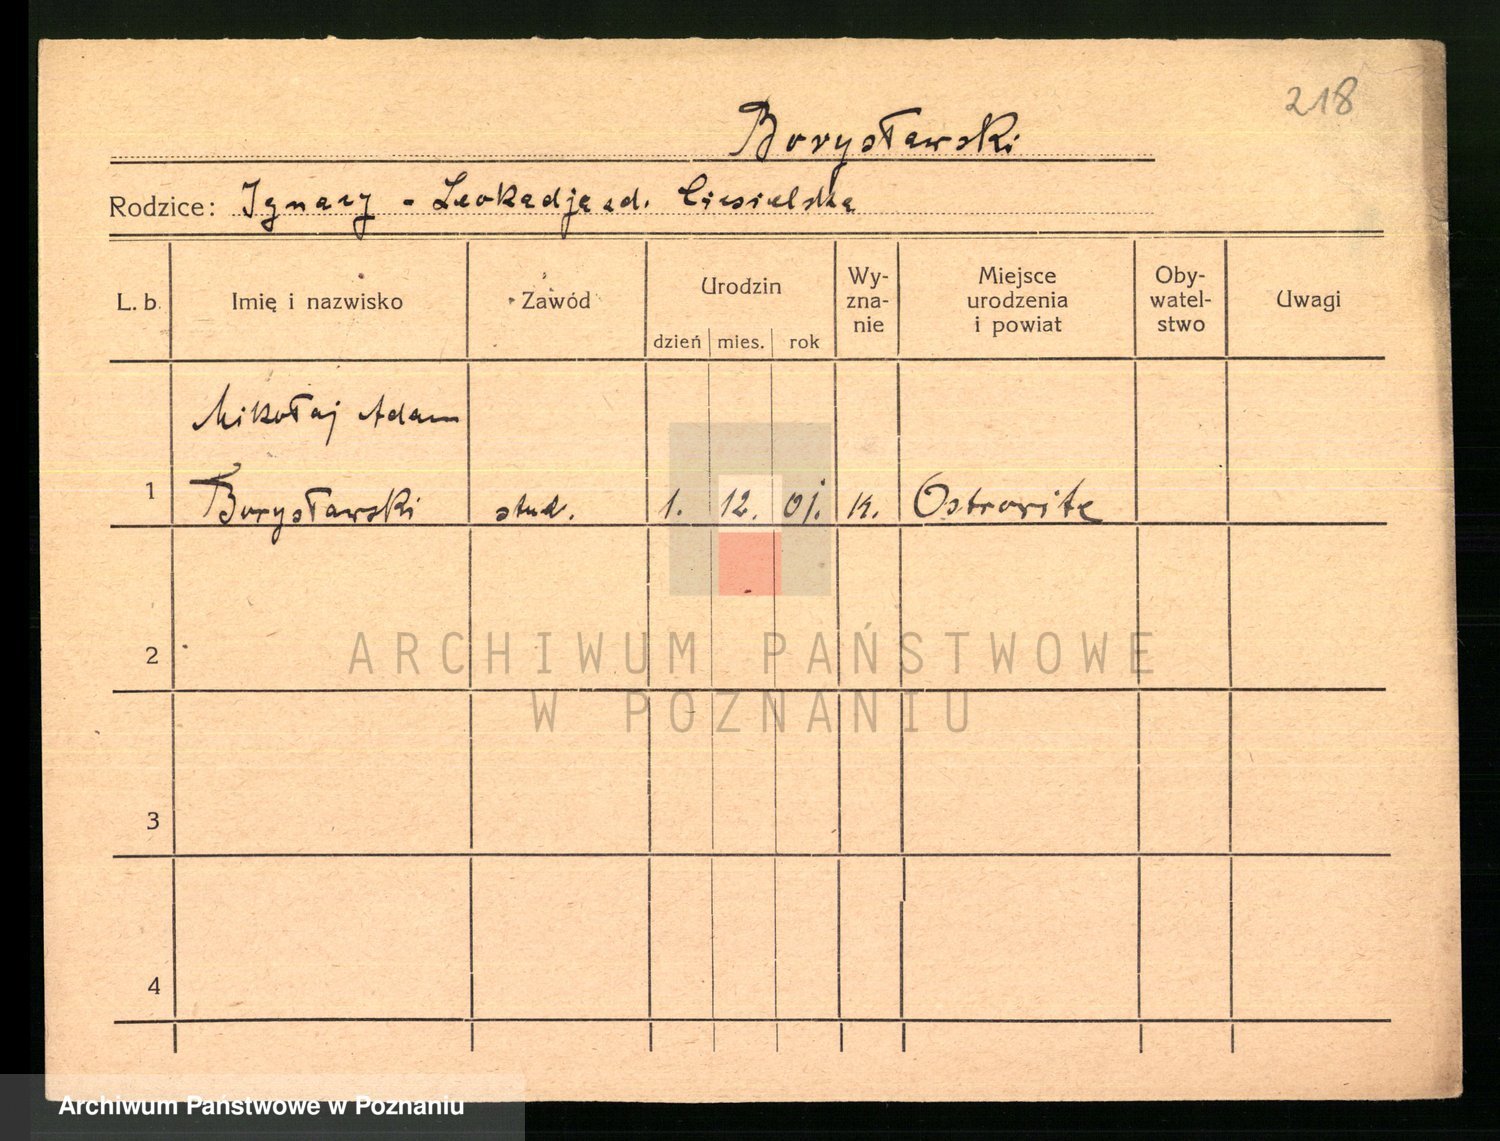 218
Borysławski
Rodzice: Ignacy - Leokadja zd. Ciesielska
L. b. Imię i nazwisko Zawód Urodzin dzień mies. rok Wy-zna-nie Miejsce urodzenia i powiat Oby-watel-stwo Uwagi
Mikołaj Adam
1 Borysławski stud. 1. 12. 01. K. Ostrowite
2
ARCHIWUM PAŃSTWOWE
W POZNANIU
3
4
Archiwum Państwowe w Poznaniu